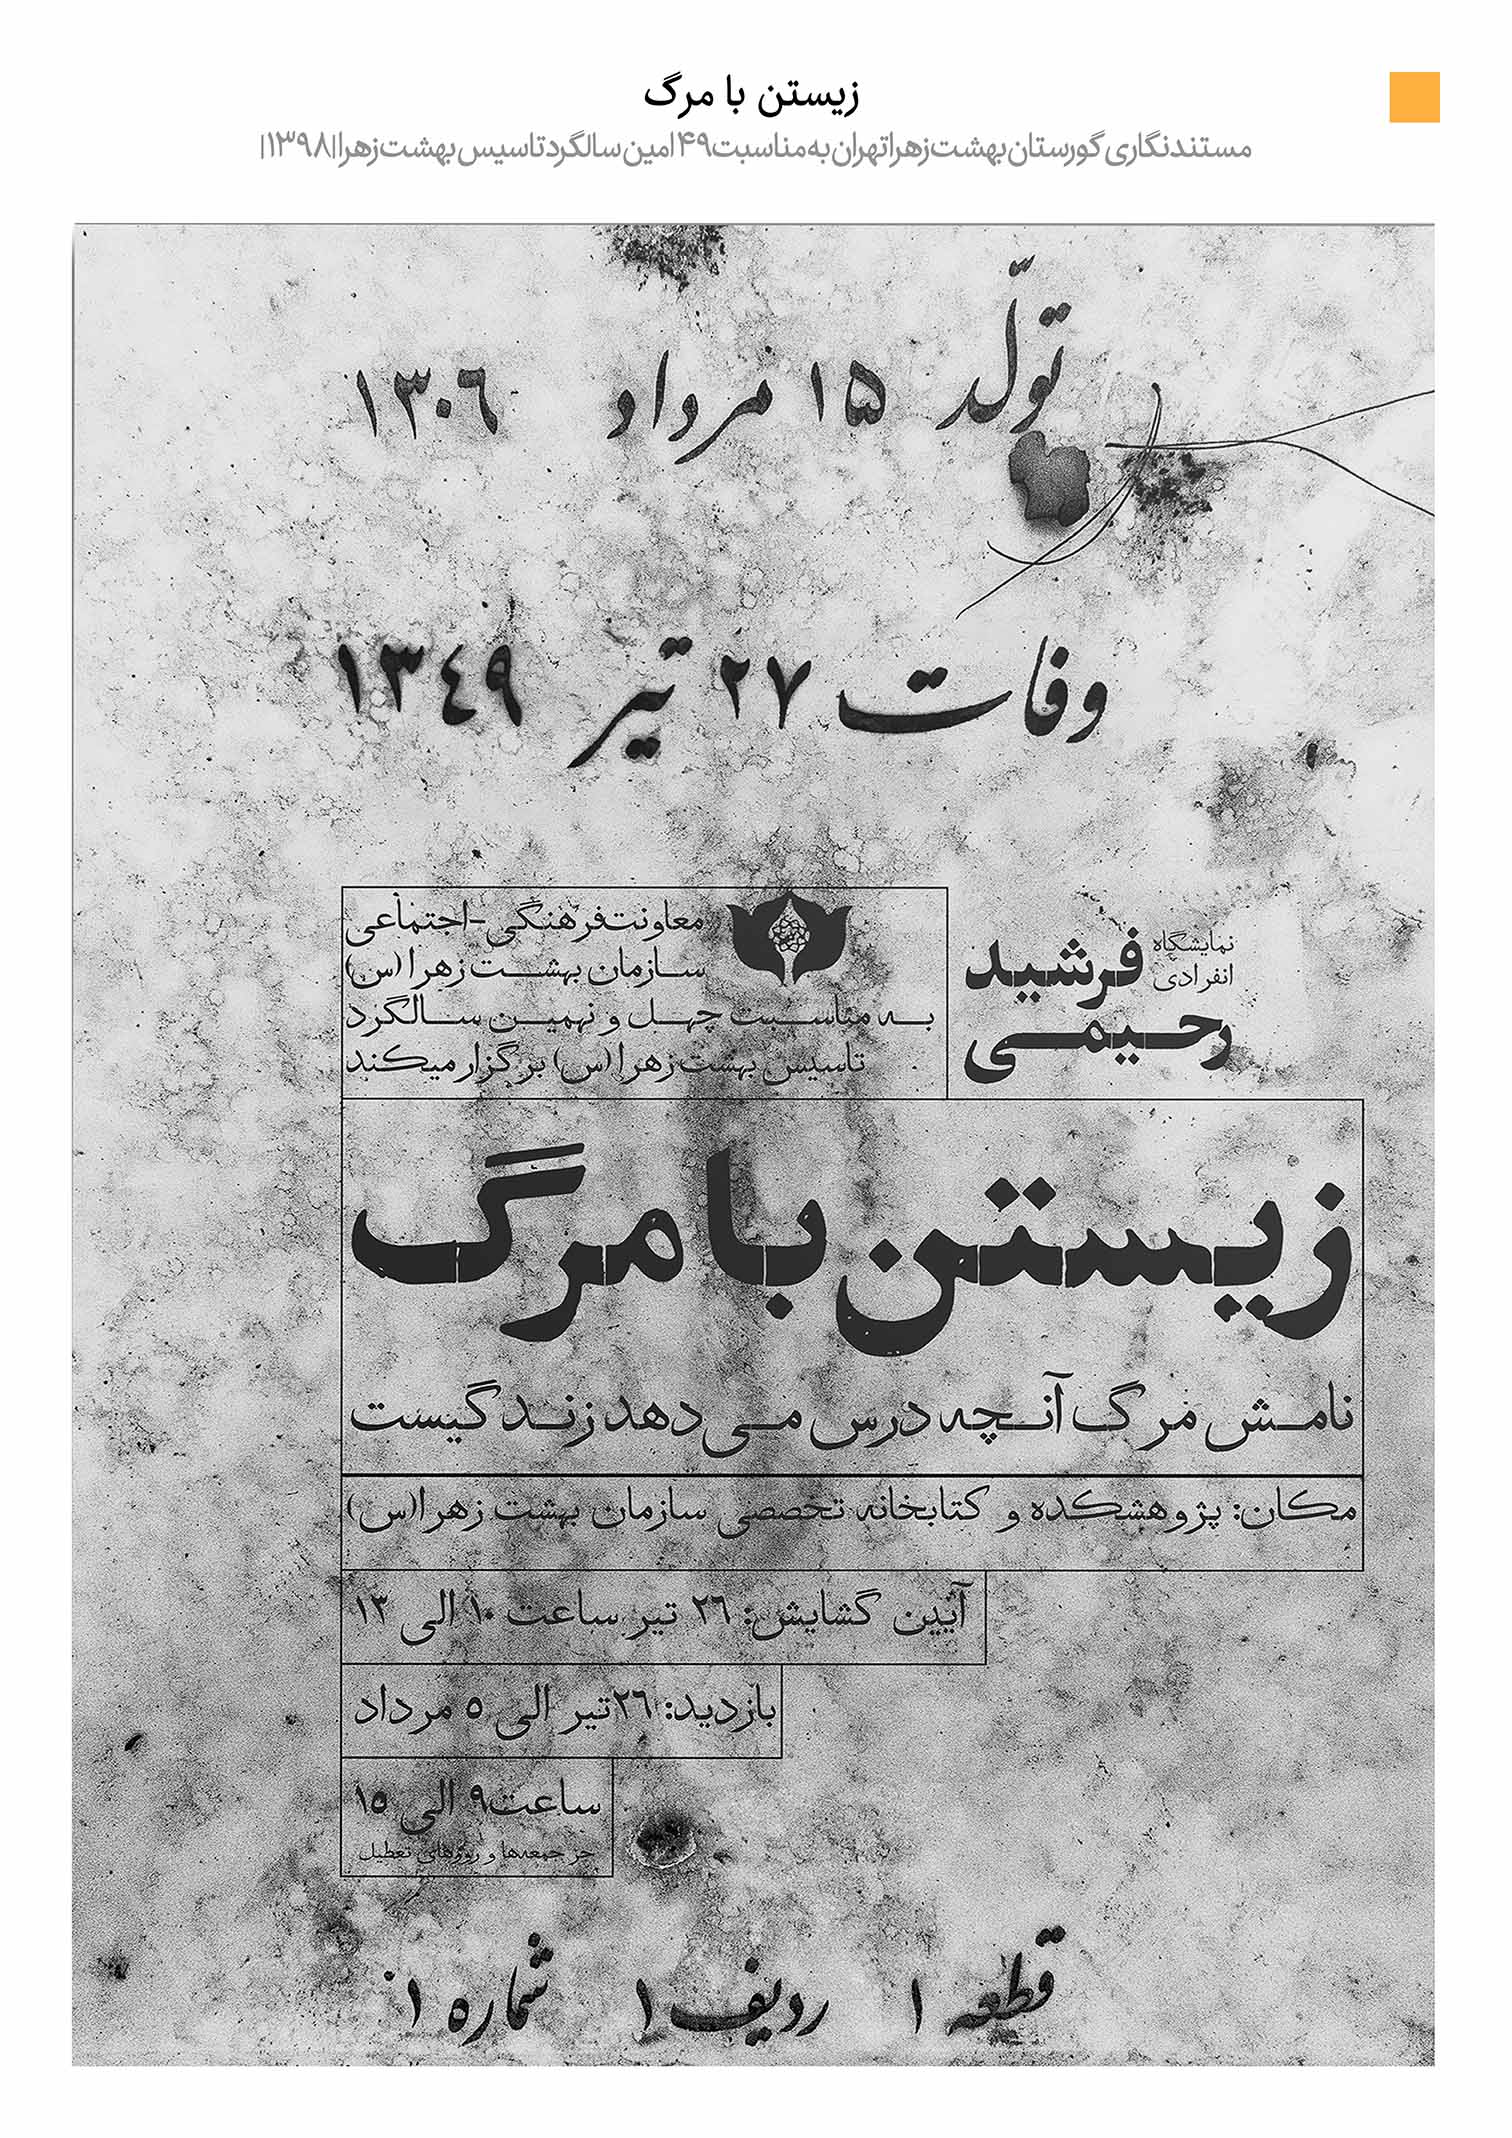 زیستن با مرگ
مستندنگاری گورستان بهشت‌زهرا تهران به مناسبت ۴۹امین سالگرد تاسیس بهشت‌زهرا |۱۳۹۸|
تولّد ۱۵ مرداد ۱۳۰۶
وفات ۲۷ تیر ۱۳٤۹
نمایشگاه
انفرادی
فرشید
رحیمی
معاونت فرهنگی-اجتماعی
سازمان بهشت زهرا (س)
به مناسبت چهل و نهمین سالگرد
تاسیس بهشت زهرا (س) برگزار میکند
زیستن با مرگ
نامش مرگ آنچه درس می دهد زندگیست
مکان: پژوهشکده و کتابخانه تخصصی سازمان بهشت زهرا(س)
آیین گشایش: ۲۶ تیر ساعت ۱۰ الی ۱۳
بازدید: ۲۶تیر الی ۵ مرداد
ساعت۹ الی ۱۵
جز جمعه‌ها و روزهای تعطیل
قطعه ۱ ردیف ۱ شماره ۱